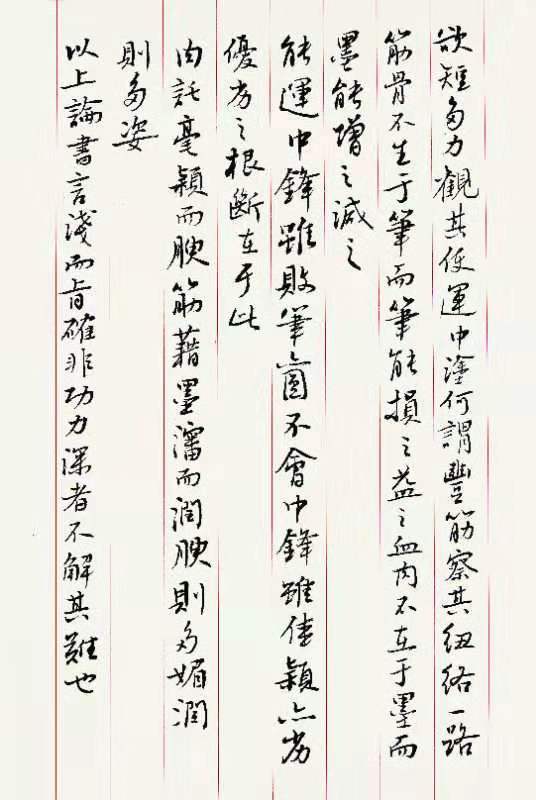 欲短多力觀其使運中塗何謂豐筋察其紐絡一路
筋骨不生于筆而筆能損之益之血肉不在于墨而
墨能增之減之
能運中鋒雖敗筆圓不會中鋒雖佳穎亦劣
優劣之根斷在于此
肉託毫穎而腴筋藉墨瀋而潤腴則多媚潤
則多姿
以上論書言淺而旨確非功力深者不解其難也